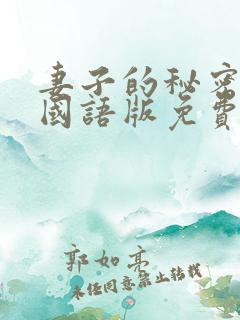 妻子的秘密
國語版免費
郭如亮
未经同意禁止转载